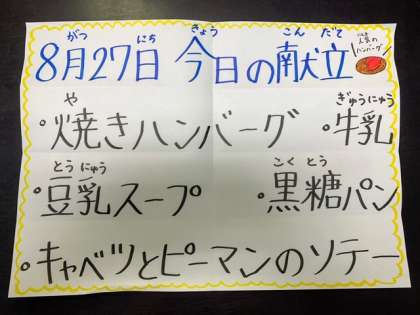 がつ にち きょう こん だて
8月27日 今日の献立
人気の
ハンバーグ
や ぎゅうにゅう
・焼きハンバーグ ・牛乳
とう にゅう こく とう
・豆乳スープ ・黒糖パン
・キャベツとピーマンのソテー